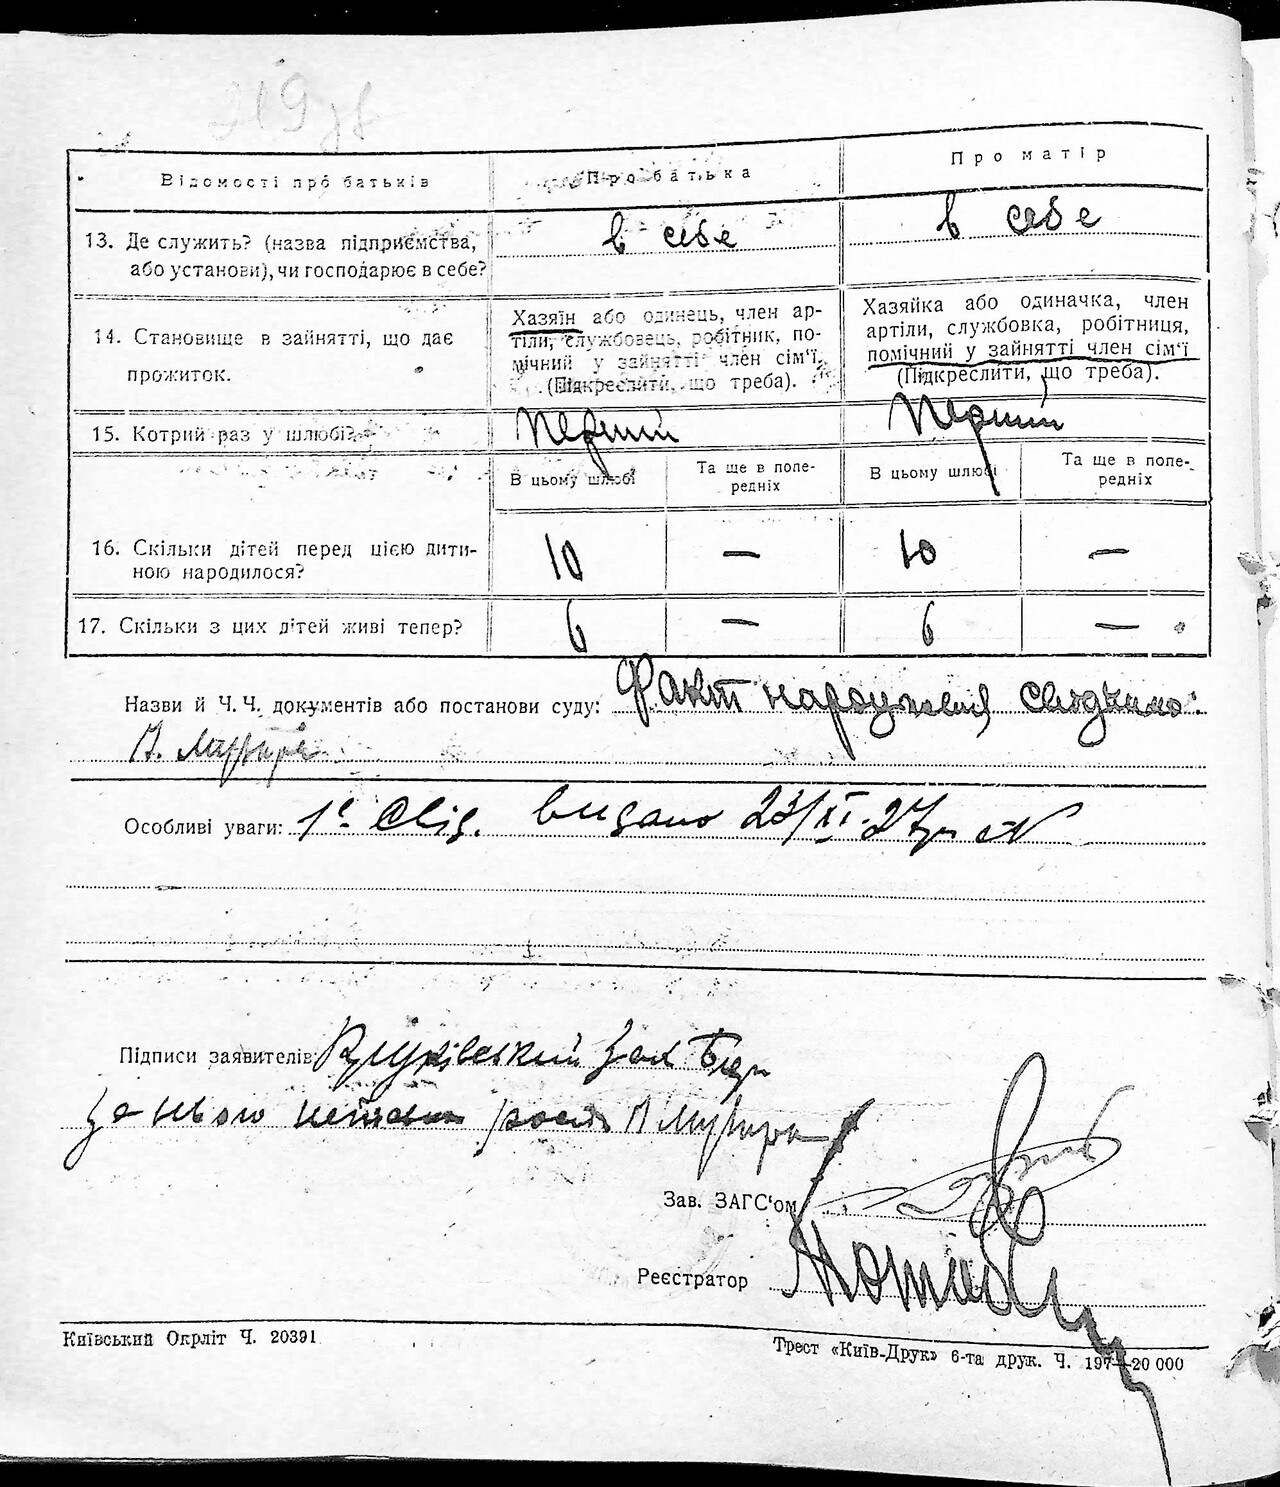 219
Відомості про батьків
Про батька
Про матір
13. Де служить? (назва підприємства, або установи), чи господарює в себе?
в себе
в себе
14. Становище в зайнятті, що дає прожиток.
Хазяїн або одинець, член артіли, службовець, робітник, помічний у зайнятті член сім'ї. (Підкреслити, що треба).
Хазяйка або одиначка, член артіли, службовка, робітниця, помічний у зайнятті член сім'ї (Підкреслити, що треба).
15. Котрий раз у шлюбі?
Перший
Перший
В цьому шлюбі
Та ще в попередніх
В цьому шлюбі
Та ще в попередніх
16. Скільки дітей перед цією дитиною народилося?
10 — 10 —
17. Скільки з цих дітей живі тепер?
6 — 6 —
Назви й Ч. Ч. документів або постанови суду: Факт народження свідчимо:
Особливі уваги: видано 23/XI-27
Підписи заявителів:
за нього
Зав. ЗАГС'ом
Реєстратор
Київський Окрліт Ч. 20391.
Трест «Київ-Друк» 6-та друк. Ч. 197—20 000